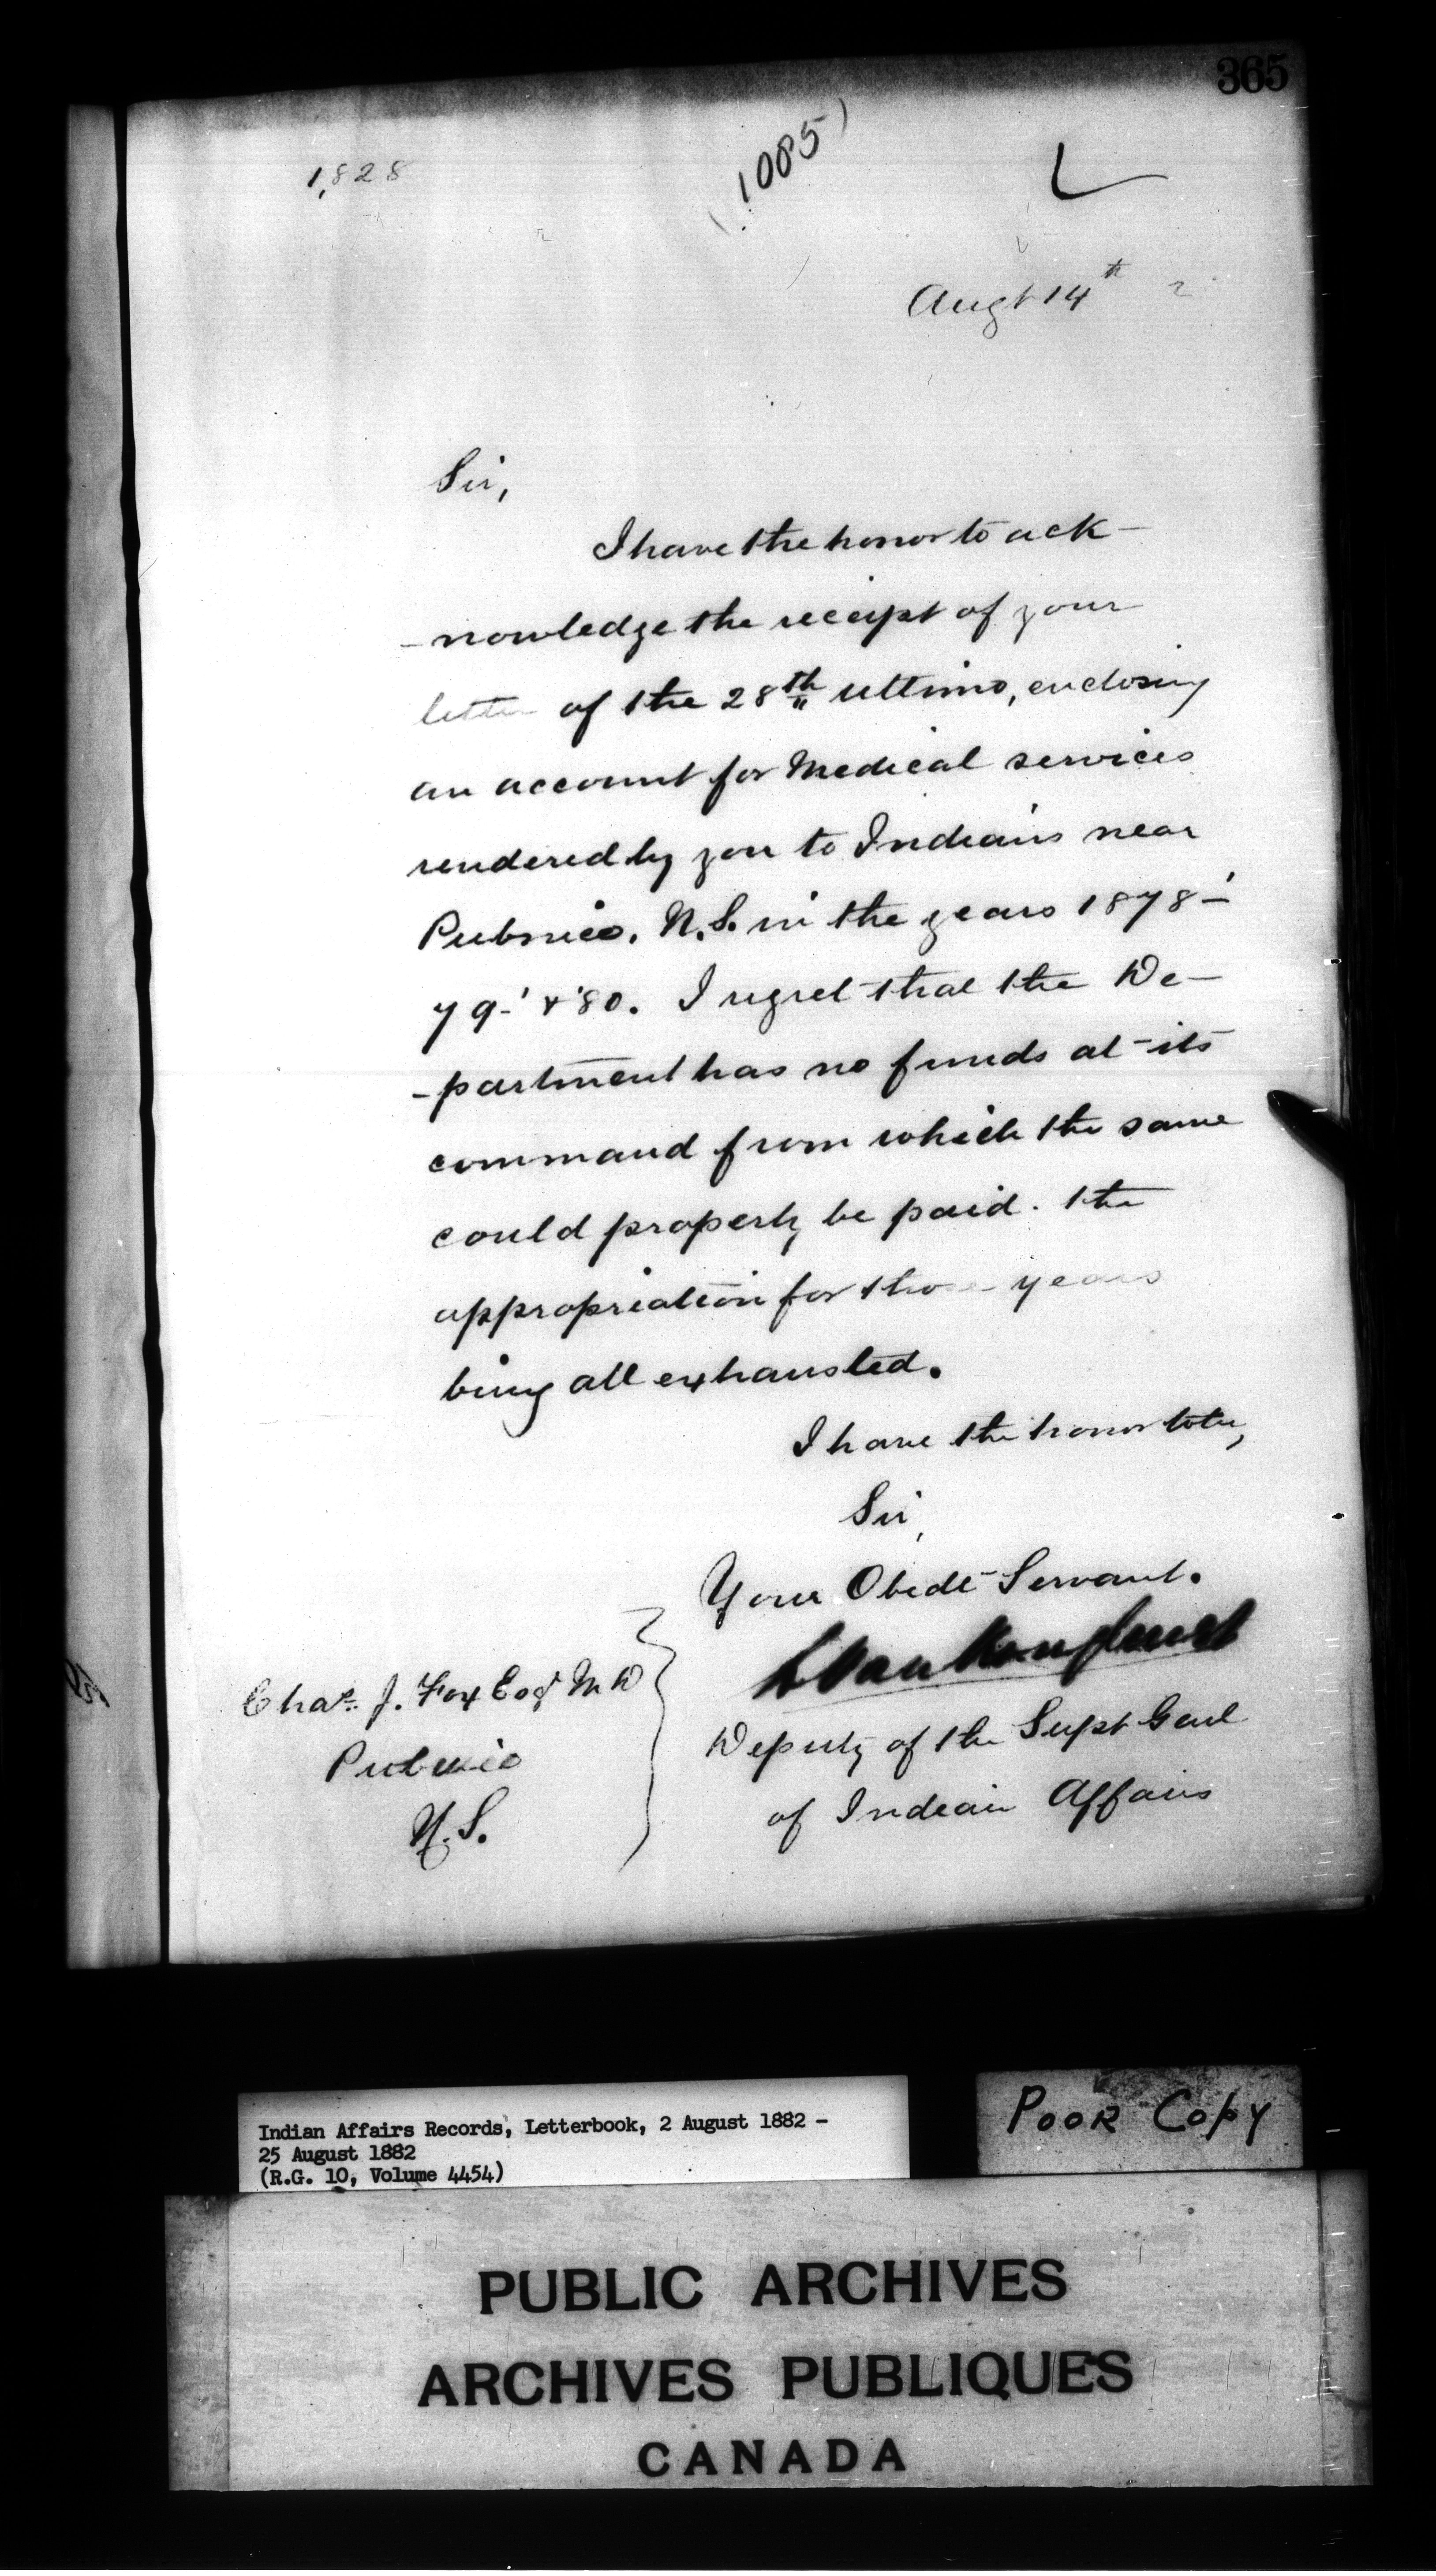 365
1,828
(1085)
Augt 14th 2
Sir,
I have the honor to ack-
-nowledge the receipt of your
letter of the 28th ultimo, enclosing
an account for Medical services
rendered by you to Indians near
Pubnico, N.S. in the years 1878-'
79-' & '80. I regret that the De-
-partment has no funds at its
command from which the same
could properly be paid. the
appropriation for those years
being all exhausted.
I have the honor to be,
Sir,
Your Obedt Servant.
L Vankoughnet
Deputy of the Supt Genl
of Indian Affairs
Chas. J. Fox Esqr M D
Pubnico
N.S.
Indian Affairs Records, Letterbook, 2 August 1882 -
25 August 1882
(R.G. 10, Volume 4454)
POOR COPY
PUBLIC ARCHIVES
ARCHIVES PUBLIQUES
CANADA